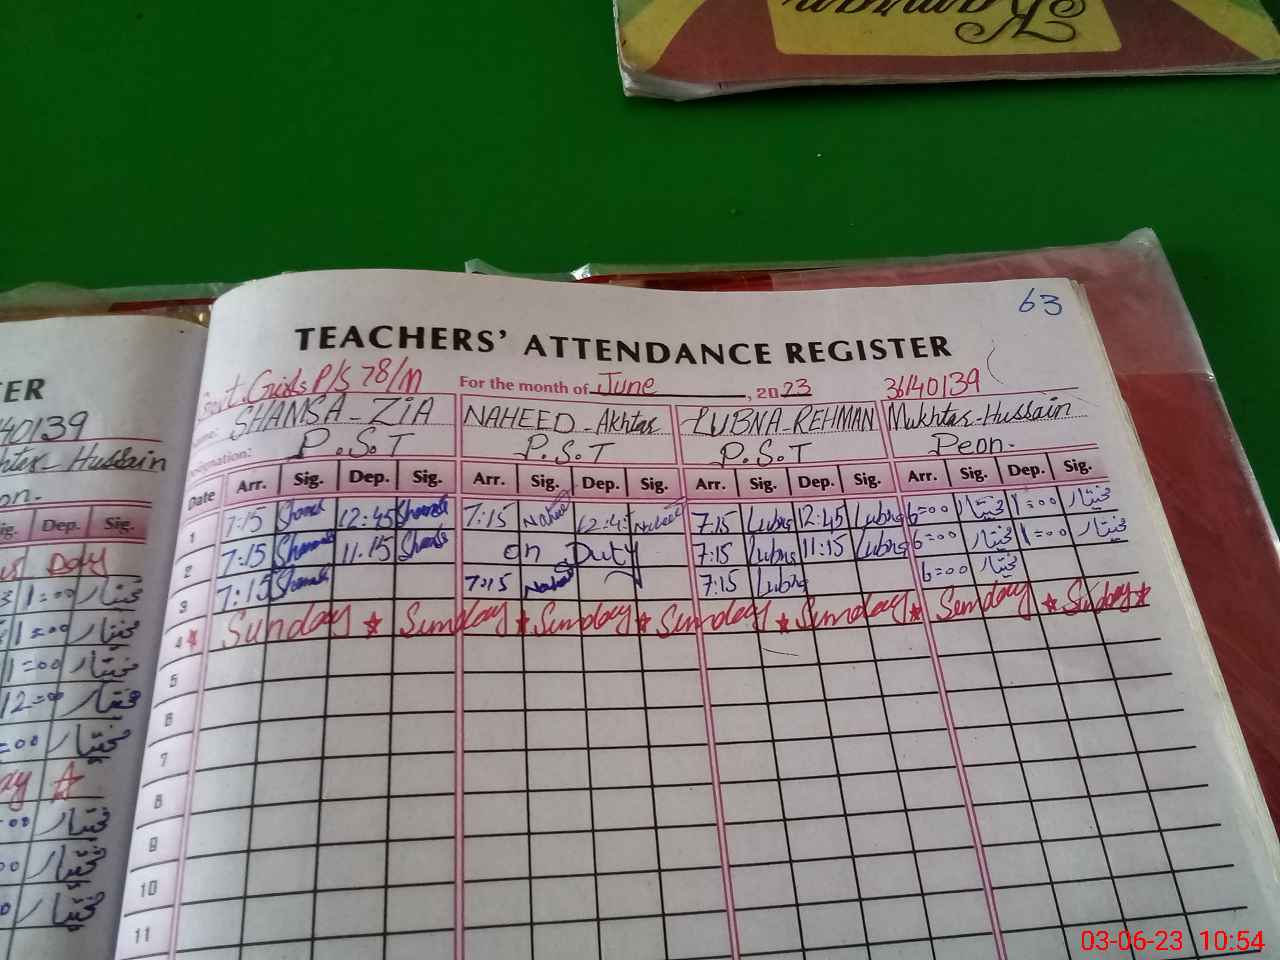 Kamran
63
TEACHERS' ATTENDANCE REGISTER
Govt. Girls P/S 78/M For the month of June, 2023 36140139
Name: SHAMSA-ZIA NAHEED-Akhtar LUBNA-REHMAN Mukhtar-Hussain
Designation: P.S.T P.S.T P.S.T Peon.
Date Arr. Sig. Dep. Sig. Arr. Sig. Dep. Sig. Arr. Sig. Dep. Sig. Arr. Sig. Dep. Sig.
1 7:15 Shamsa 12:45 Shamsa 7:15 Naheed 12:45 Naheed 7:15 Lubna 12:45 Lubna 6=00 مختیار 1=00 مختیار
2 7:15 Shamsa 11:15 Shamsa on Duty 7:15 Lubna 11:15 Lubna 6=00 مختیار 1=00 مختیار
3 7:15 Shamsa 7:15 Naheed 7:15 Lubna 6=00 مختیار
4 Sunday Sunday Sunday Sunday Sunday Sunday Sunday
5
6
7
8
9
10
11
TER
40139
htar-Hussain
on.
ig. Dep. Sig.
Day
1=00 مختیار
1=00 مختیار
1=00 مختیار
12=00 مختیار
=00 مختیار
ay
=00 مختیار
=00 مختیار
0 مختیار
03-06-23 10:54